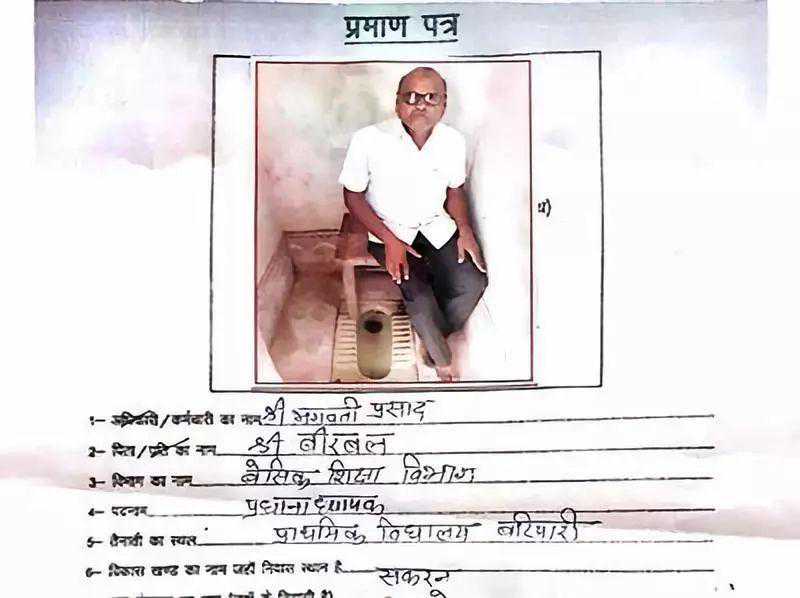 प्रमाण पत्र
1- अधिकारी/कर्मचारी का नाम श्री भगवती प्रसाद
2- पिता/पति का नाम श्री बीरबल
3- विभाग का नाम बेसिक शिक्षा विभाग
4- पदनाम प्रधानाध्यापक
5- तैनाती का स्थल प्राथमिक विद्यालय बरियारी
6- विकास खण्ड का नाम जहाँ निवास स्थान है सकरन